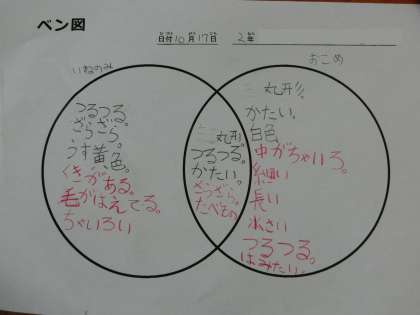 ベン図
10月17日 2年
いねのみ
おこめ
つるつる。
ざらざら。
うす黄色。
くきがある。
毛がはえてる。
ちゃいろい
三丸形
つるつる。
かたい。
ざらざら。
たべもの
三丸形。
かたい。
白色
中がちゃいろ。
細い
長い
小さい
つるつる。
はみたい。